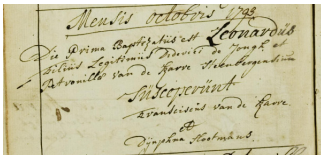 Mensis octobris 1798
Die Prima Baptizatus est Leonardus
Filius Legitimus Diderici de Jongh et
Petronilla van de Karre Steenbergensium
Susceperunt
Franciscus van de Karre
et
Dijmphna Slootmans.